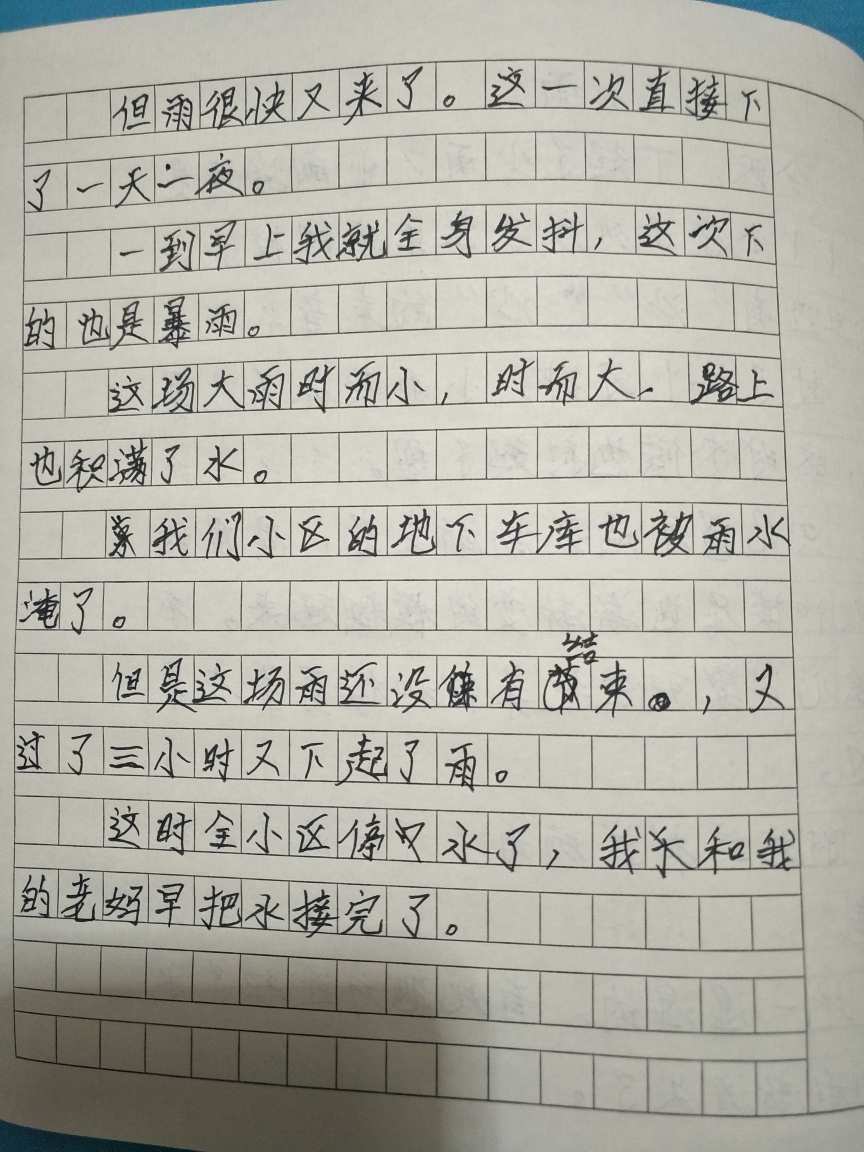 但雨很快又来了。这一次直接下
了一天一夜。
一到早上我就全身发抖，这次下
的也是暴雨。
这场大雨时而小，时而大、路上
也积满了水。
我们小区的地下车库也被雨水
淹了。
但是这场雨还没有结束。，又
过了三小时又下起了雨。
这时全小区停水了，我和我
的老妈早把水接完了。